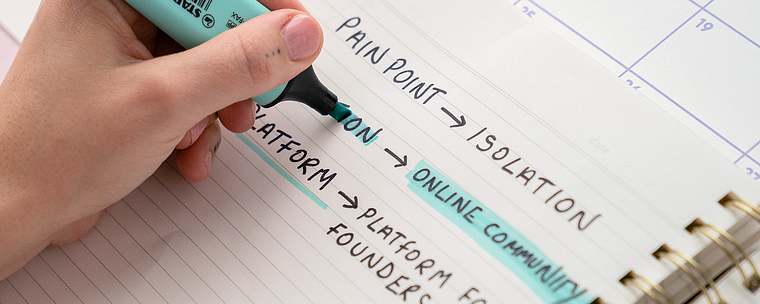 PAIN POINT → ISOLATION
ION → ONLINE COMMUNITY
PLATFORM → PLATFORM FO
FOUNDERS
STABI
19
25
26
27